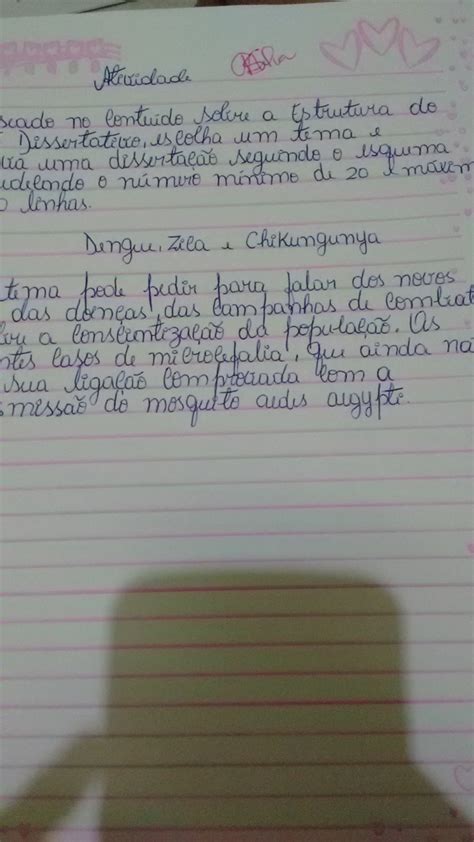 Atividade
scado no Conteúdo sobre a Estrutura do
Dissertativo, escolha um tema e
uma dissertação seguindo o esquema
o número mínimo de 20 e máxim
linhas.
Dengue, Zica e Chikungunya
tema pode pedir para falar dos novos
das doenças, das campanhas de combat
a conscientização da população. Os
ntes casos de microcefalia, que ainda nã
sua ligação comprovada com a
smissão do mosquito aedes aegypti.